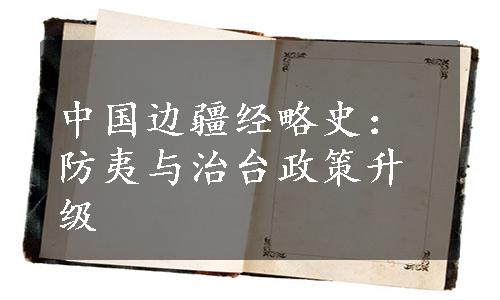 中国边疆经略史：
防夷与治台政策升
级